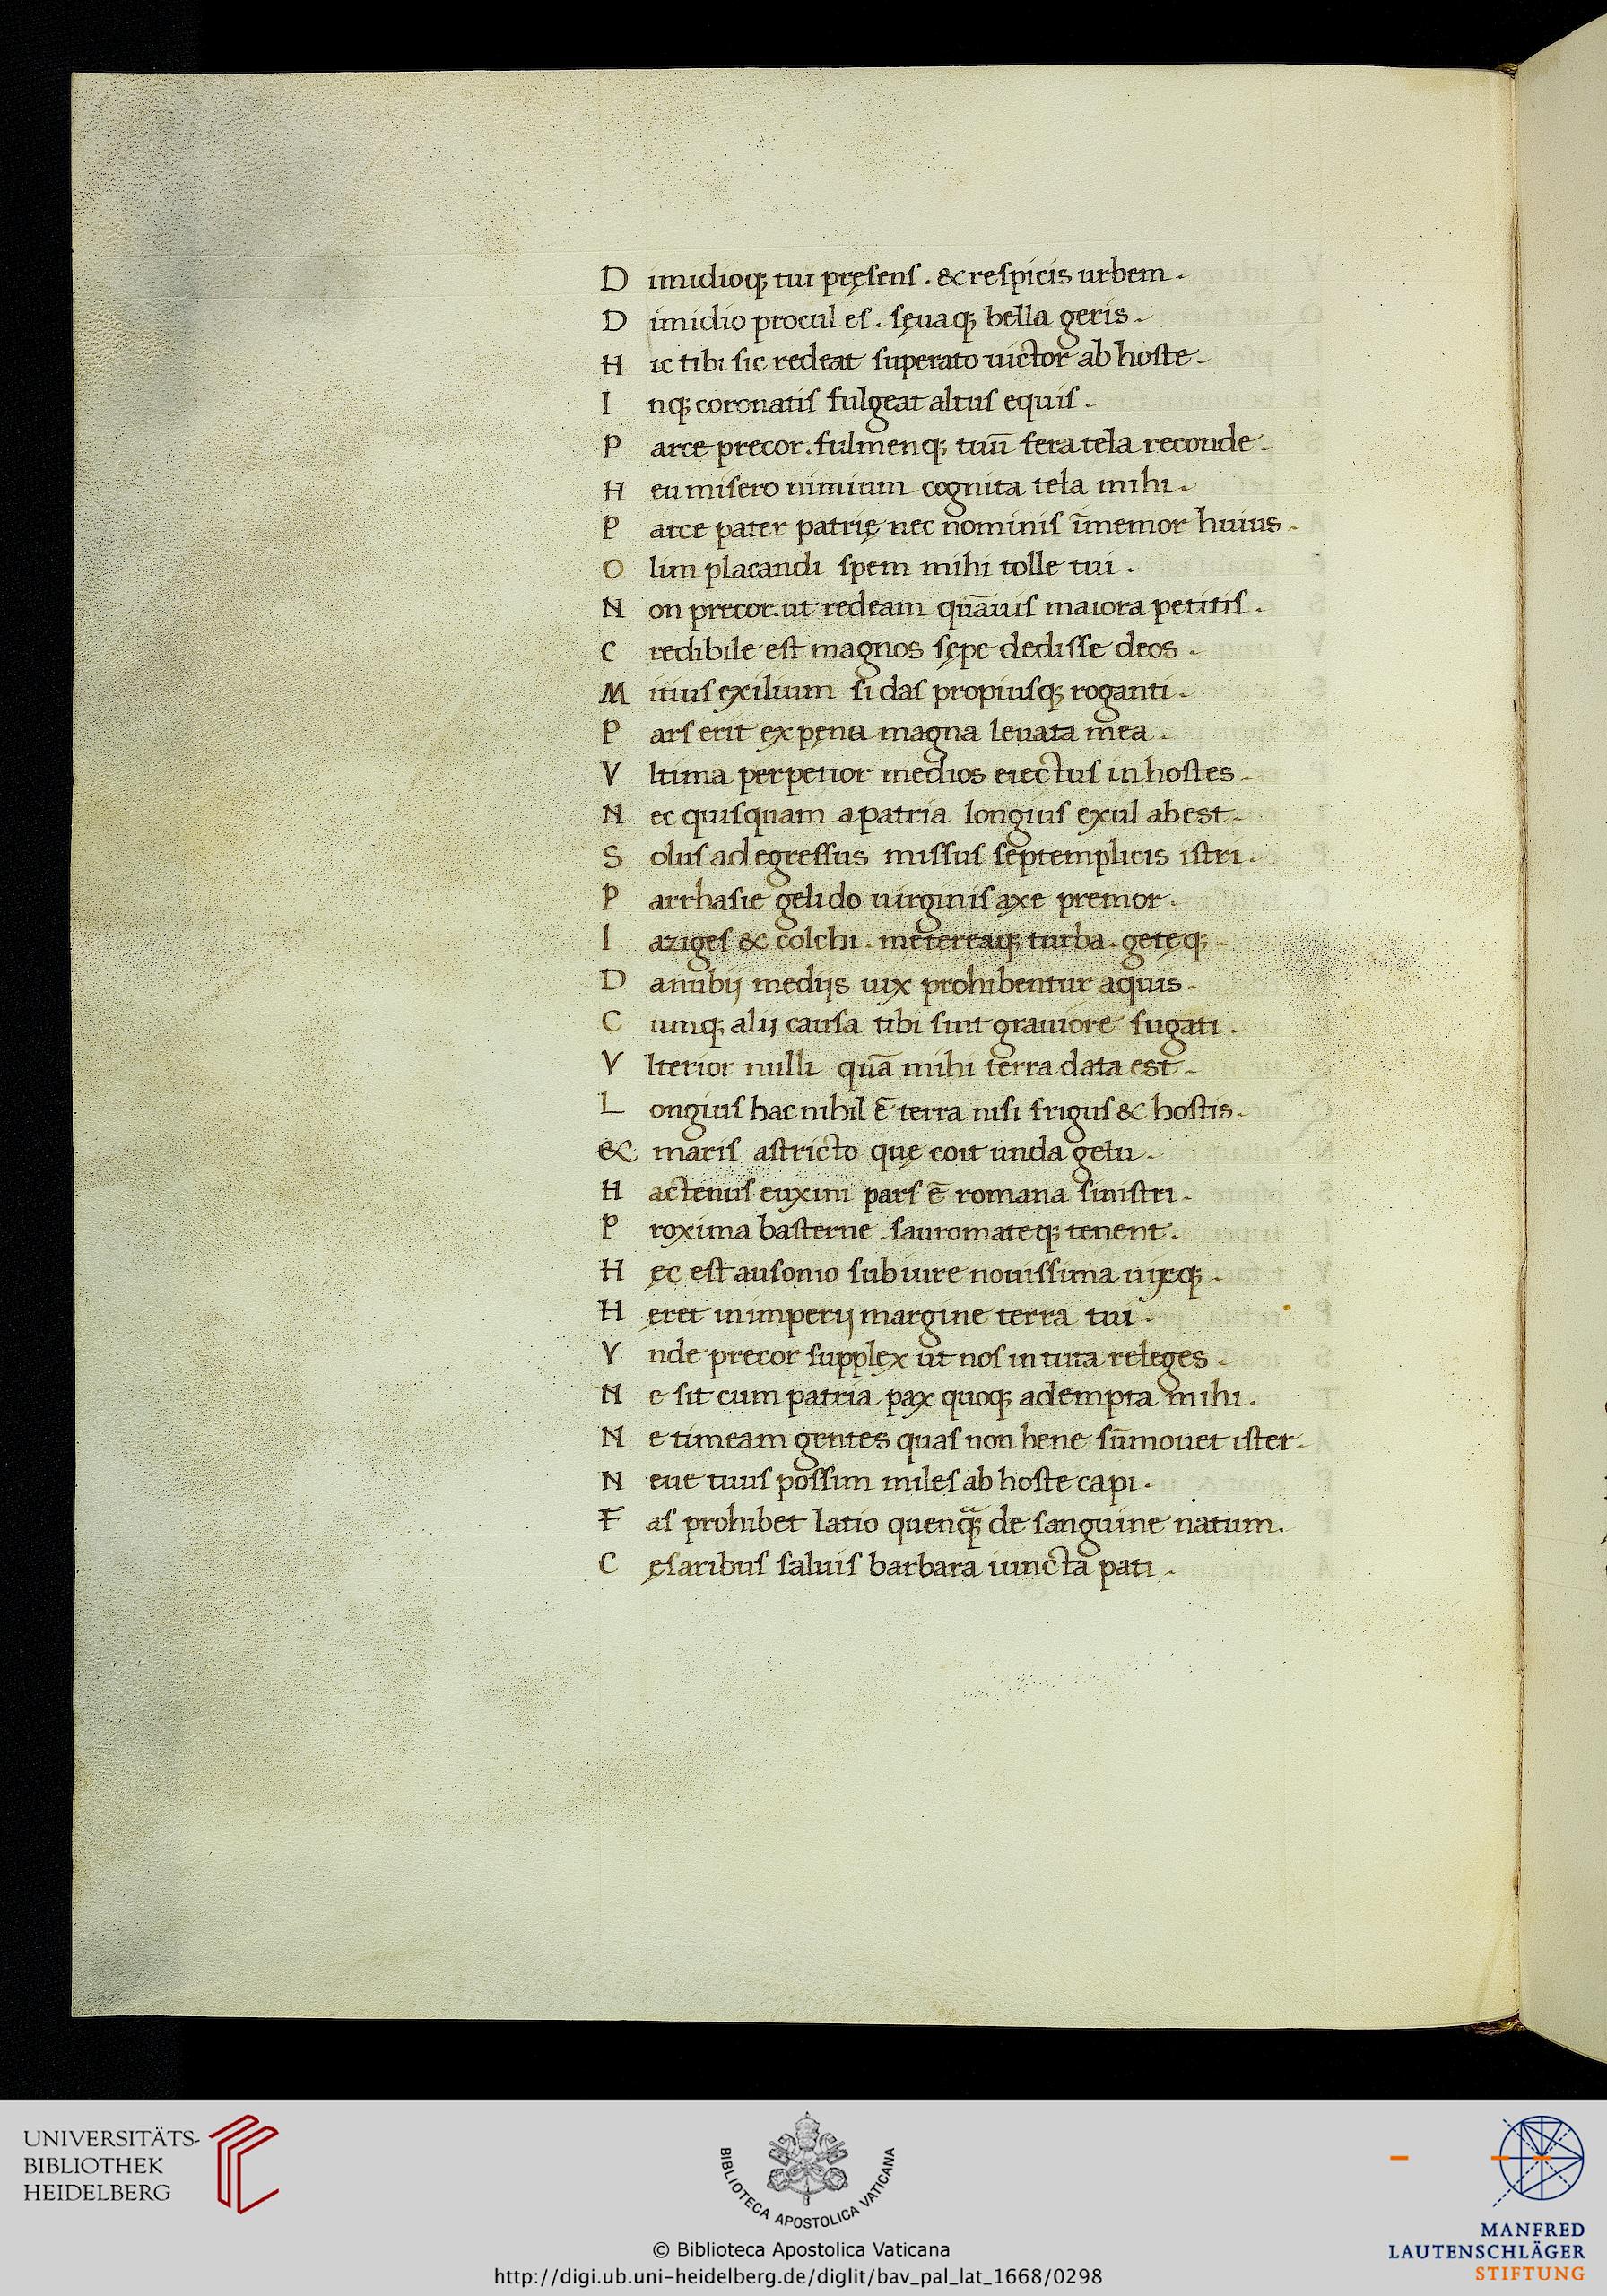 D imidioq; tui pręſenſ . & reſpicis urbem .
D imidio procul eſ . ſęuaq; bella geris .
H ic tibi ſic redeat ſuperato uictor ab hoſte .
I nq; coronatiſ fulgeat altuſ equiſ .
P arce precor . fulmenq; tuū fera tela reconde .
H eu miſero nimium cognita tela mihi .
P arce pater patrię nec nominiſ īmemor huius .
O lim placandi ſpem mihi tolle tui .
N on precor . ut redeam quāuiſ maiora petitiſ .
C redibile eſt magnos ſępe dediſſe deos .
M itiuſ exilium ſi daſ propiuſq; roganti .
P arſ erit ex pęna magna leuata mea .
V ltima perpetior medios eiectuſ in hoſtes .
N ec quiſquam a patria longiuſ exul abest .
S oluſ ad egreſſus miſſuſ ſeptemplicis iſtri .
P arrhaſie gelido uirginiſ axe premor .
I azigeſ & colchi . metereaq; turba . getęq;
D anubij medijs uix prohibentur aquis .
C umq; alij cauſa tibi ſint grauiore fugati .
V lterior nulli quā mihi terra data est .
L ongiuſ hac nihil ē terra niſi friguſ & hoſtis .
& mariſ aſtricto quę coit unda gelu .
H actenuſ euxini parſ ē romana ſiniſtri .
P roxima baſterne ſauromateq; tenent .
H ęc eſt auſonio ſub iure nouiſſima uixq; .
H ęret in imperij margine terra tui .
V nde precor ſupplex ut noſ in tuta releges .
N e ſit cum patria pax quoq; adempta mihi .
N e timeam gentes quaſ non bene ſūmouet iſter .
N eue tuuſ poſſim mileſ ab hoſte capi .
F as prohibet latio quenq̄; de ſanguine natum .
C ęſaribuſ ſaluiſ barbara iuncta pati .
UNIVERSITÄTS-
BIBLIOTHEK
HEIDELBERG
BIBLIOTECA APOSTOLICA VATICANA
© Biblioteca Apostolica Vaticana
http://digi.ub.uni-heidelberg.de/diglit/bav_pal_lat_1668/0298
MANFRED
LAUTENSCHLÄGER
STIFTUNG